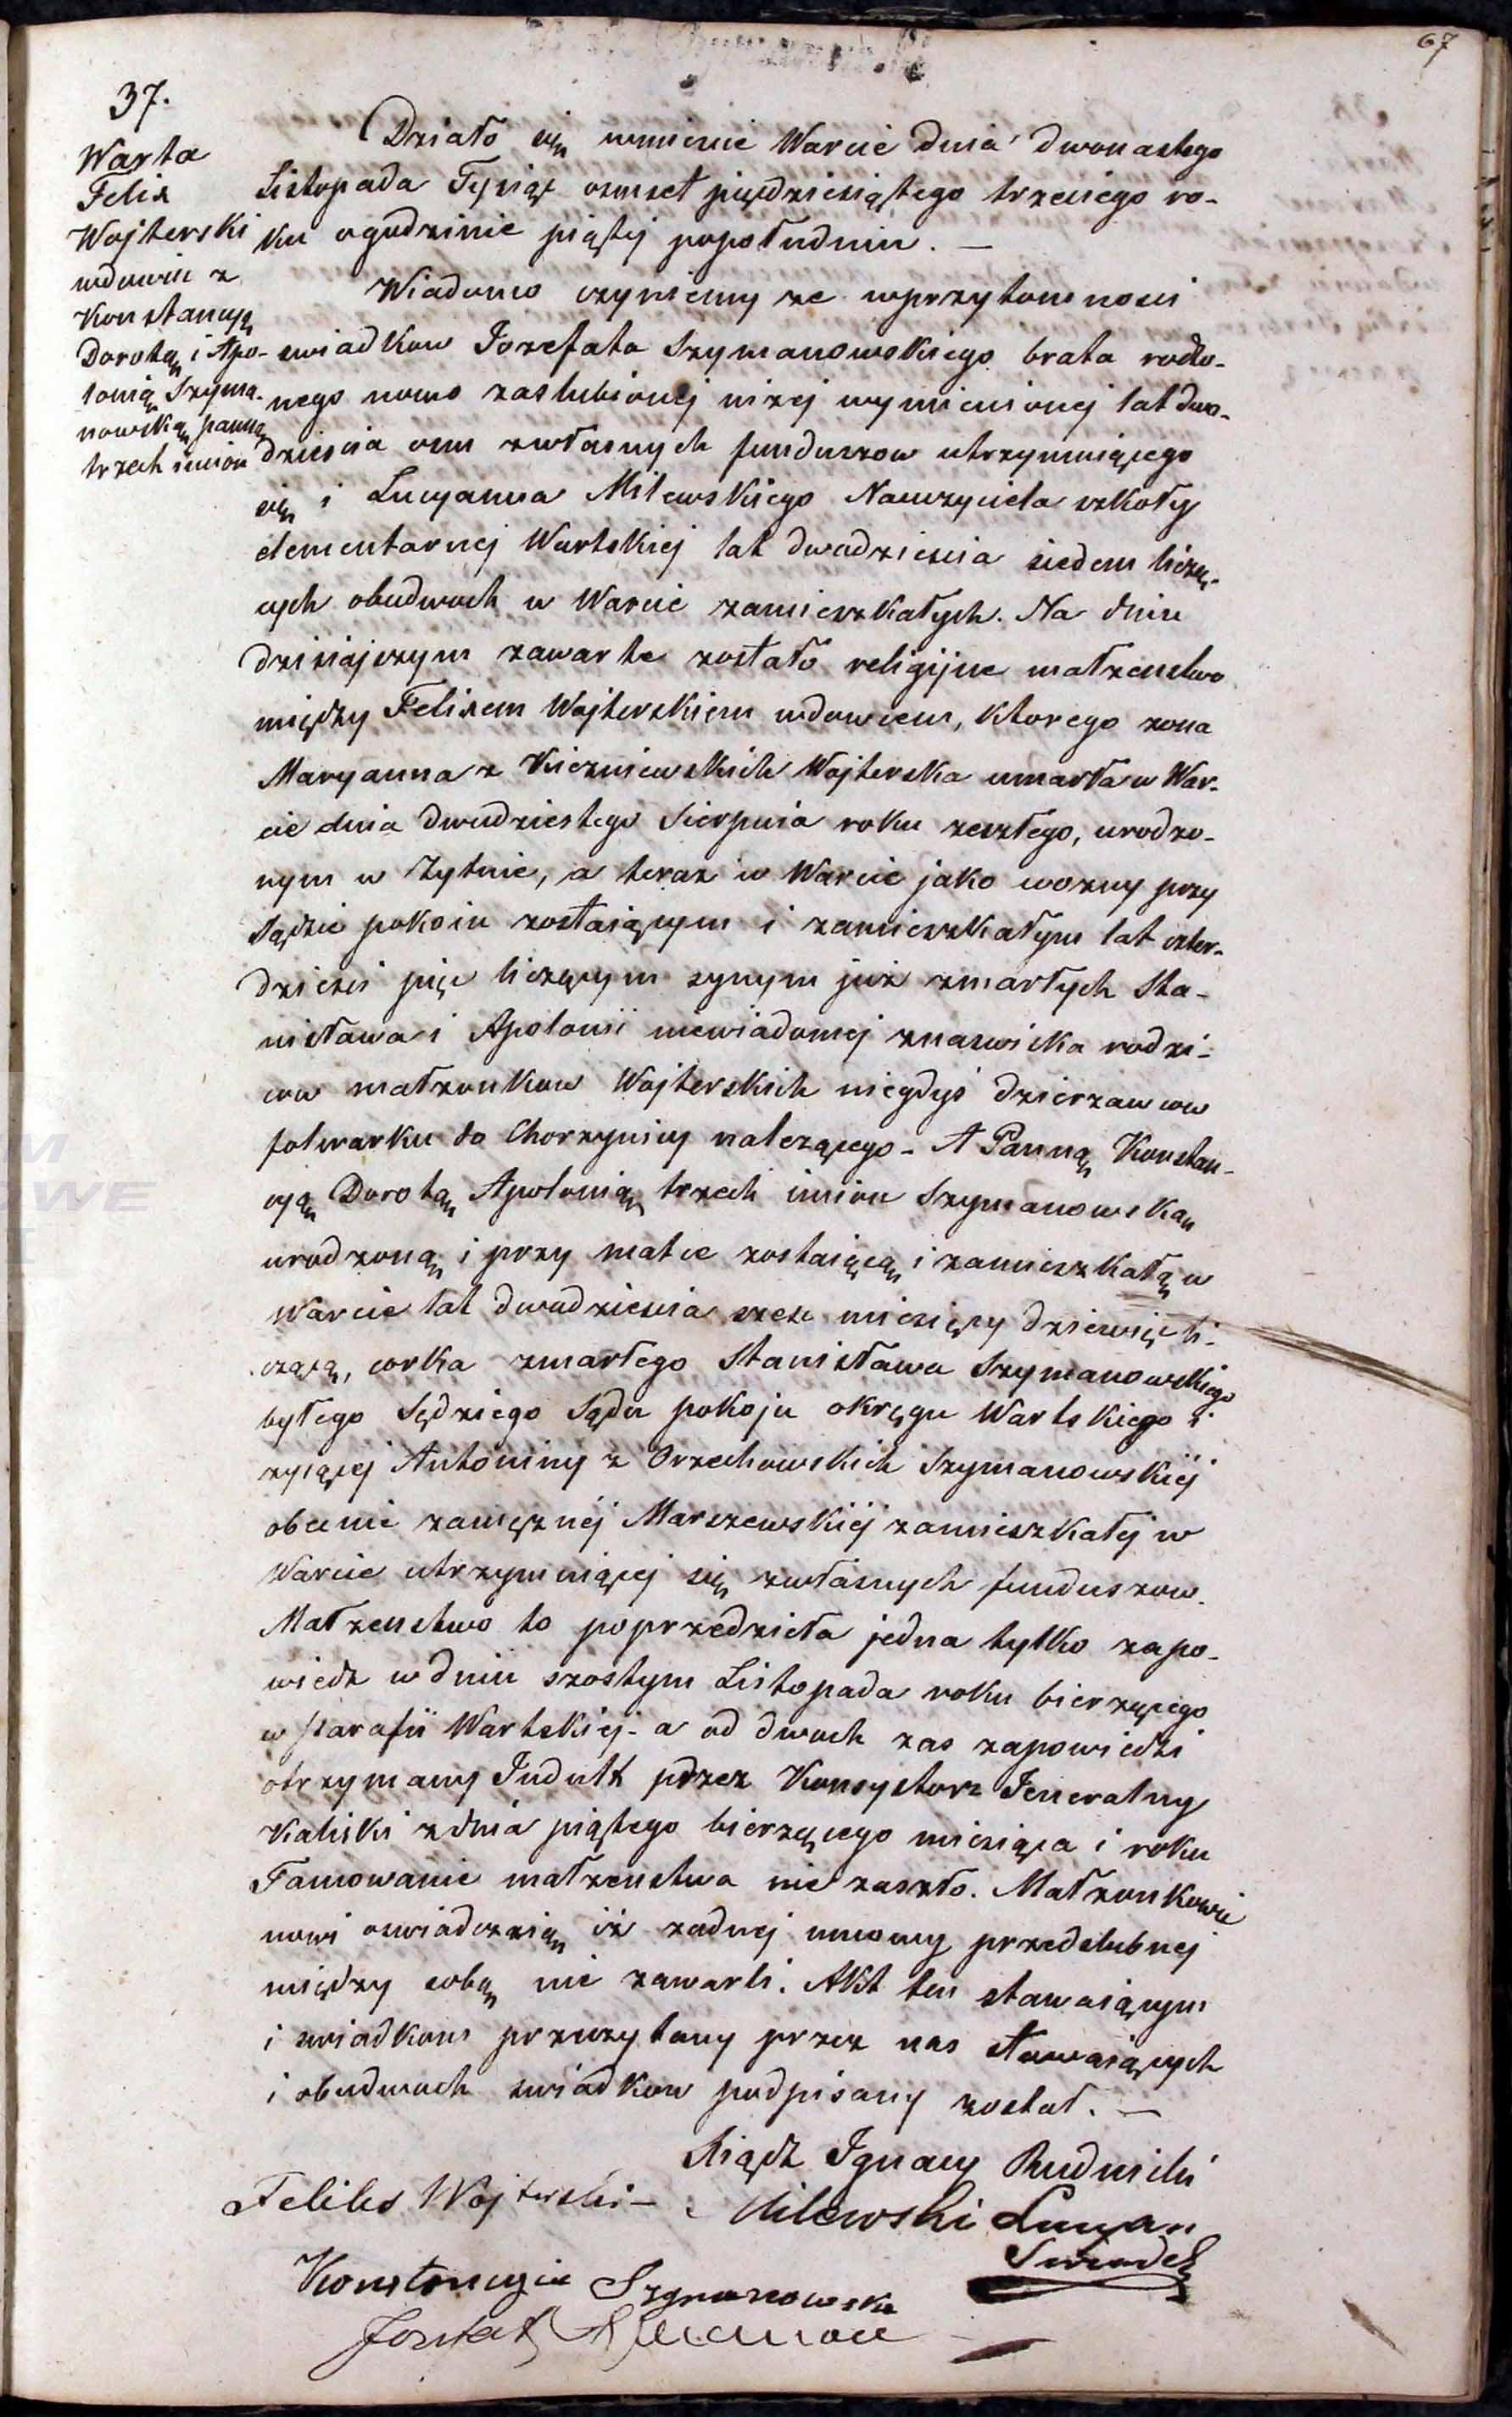 67
37.
Warta
Felix
Wojterski
wdowiec z
Konstancyą
Dorotą i Apo-
lonią Szyma-
nowską panną
trzech imion
Działo się wmieście Warcie dnia dwonastego
Listopada Tysiąc osmset piędziesiątego trzeciego ro-
ku ogodzinie piątej popołudniu. —
Wiadomo czyniemy ze wprzytomnosci
swiadkow Jozefata Szymanowskiego brata rodzo-
nego nowo zaslubionej nizej wymienionej lat dwa-
dziescia osm zwłasnych funduszow utrzymuiącego
się i Lucyanna Milewskiego Nauczyciela szkoły
elementarnej Wartskiej lat dwadziescia siedem liczą-
cych obudwoch w Warcie zamieszkałych. Na dniu
dzisiajszym zawarte zostało religijne małzenstwo
między Felixem Wojterskiem wdowcem, ktorego zona
Maryanna z Kiczniewskich Wojterska umarła w War-
cie dnia dwudziestego Sierpnia roku zeszłego, urodzo-
nym w Żytnie, a teraz w Warcie jako wozny przy
Sądzie pokoiu zostaiącym i zamieszkałym lat czter-
dziesci pięc liczącym synym już zmarłych Sta-
nisława i Apolonii niewiadomej znazwiska rodzi-
cow małzonkow Wojterskich niegdys dzierzawcow
folwarku do Chorzynicy nalezącego - A Panną Konstan-
cyą Dorotą Apolonią trzech imion Szymanowską
urodzoną i przy matce zostaiącą i zamieszkałą w
Warcie lat dwadziescia szesc miesięcy dziewięc li-
czącą, corka zmarłego Stanisława Szymanowskiego
byłego Sędziego Sądu pokoju okręgu Wartskiego i
zyiącej Antoniny z Orzechowskich Szymanowskiej
obecnie zamęznej Marszewskiej zamieszkałej w
Warcie utrzymuiącej się zwłasnych funduszow.
Małzenstwo to poprzedzieła jedna tylko zapo-
wiedz w dniu szostym Listopada roku bierzącego
w Parafii Wartskiej - a od dwoch zas zapowiedzi
otrzymany Indult przez Konsystorz Jeneralny
Kaliski z dnia piątego bierzącego miesiąca i roku
Tamowanie małzenstwa nie zaszło. Małzonkowie
nowi oswiadczaią iż zadnej umowy przedslubnej
między sobą nie zawarli. Akt ten stawaiącym
i swiadkom przeczytany przez nas stawaiących
i obudwoch swiadkow podpisany został. —
Ksiądz Ignacy Rudnicki
Feliks Wojterski — Milewski Lucyan
Swiadek
Konstancyia Szymanowska